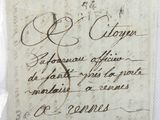 Citoyen
Defournau officier
de santé près la porte
mordaise a rennes
a rennes